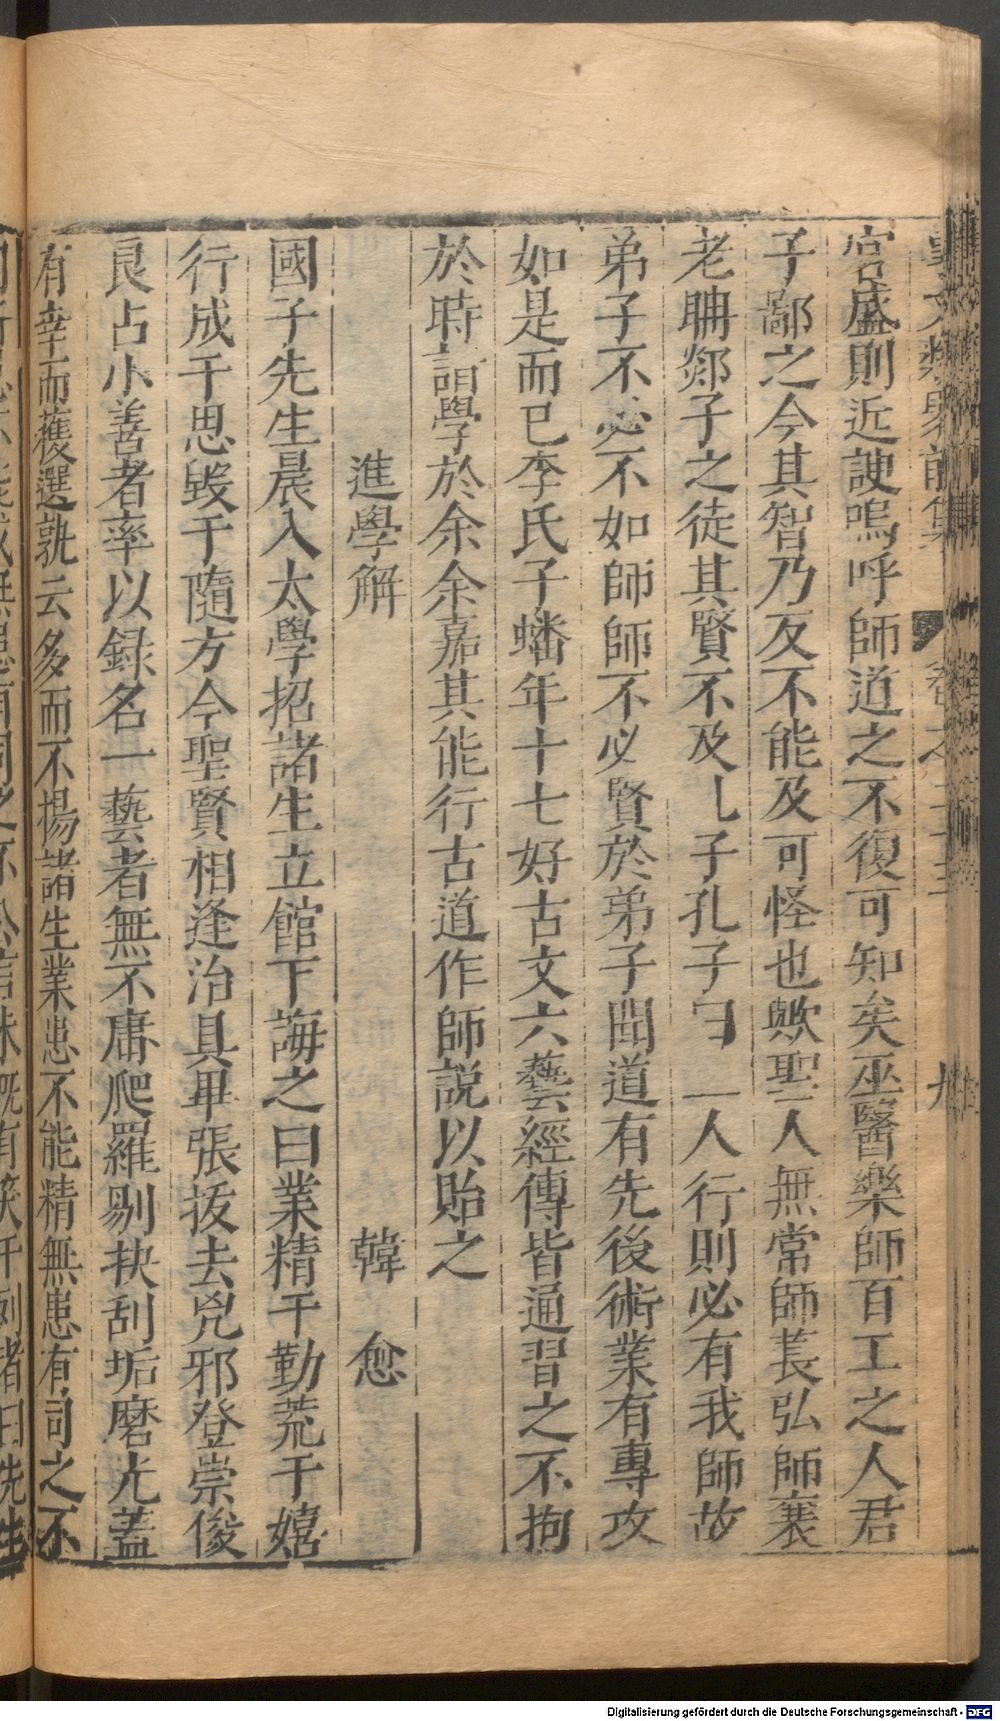 官盛則近諛嗚呼師道之不復可知矣巫醫樂師百工之人君
子鄙之今其智乃反不能及可怪也歟聖人無常師萇弘師襄
老聃郯子之徒其賢不及孔子孔子曰三人行則必有我師故
弟子不必不如師師不必賢於弟子聞道有先後術業有專攻
如是而已李氏子蟠年十七好古文六藝經傳皆通習之不拘
於時請學於余余嘉其能行古道作師說以貽之
進學解 韓 愈
國子先生晨入太學招諸生立館下誨之曰業精于勤荒于嬉
行成于思毀于隨方今聖賢相逢治具畢張拔去兇邪登崇俊
良占小善者率以録名一藝者無不庸爬羅剔抉刮垢磨光蓋
有幸而獲選孰云多而不揚諸生業患不能精無患有司之不
Digitalisierung gefördert durch die Deutsche Forschungsgemeinschaft - DFG